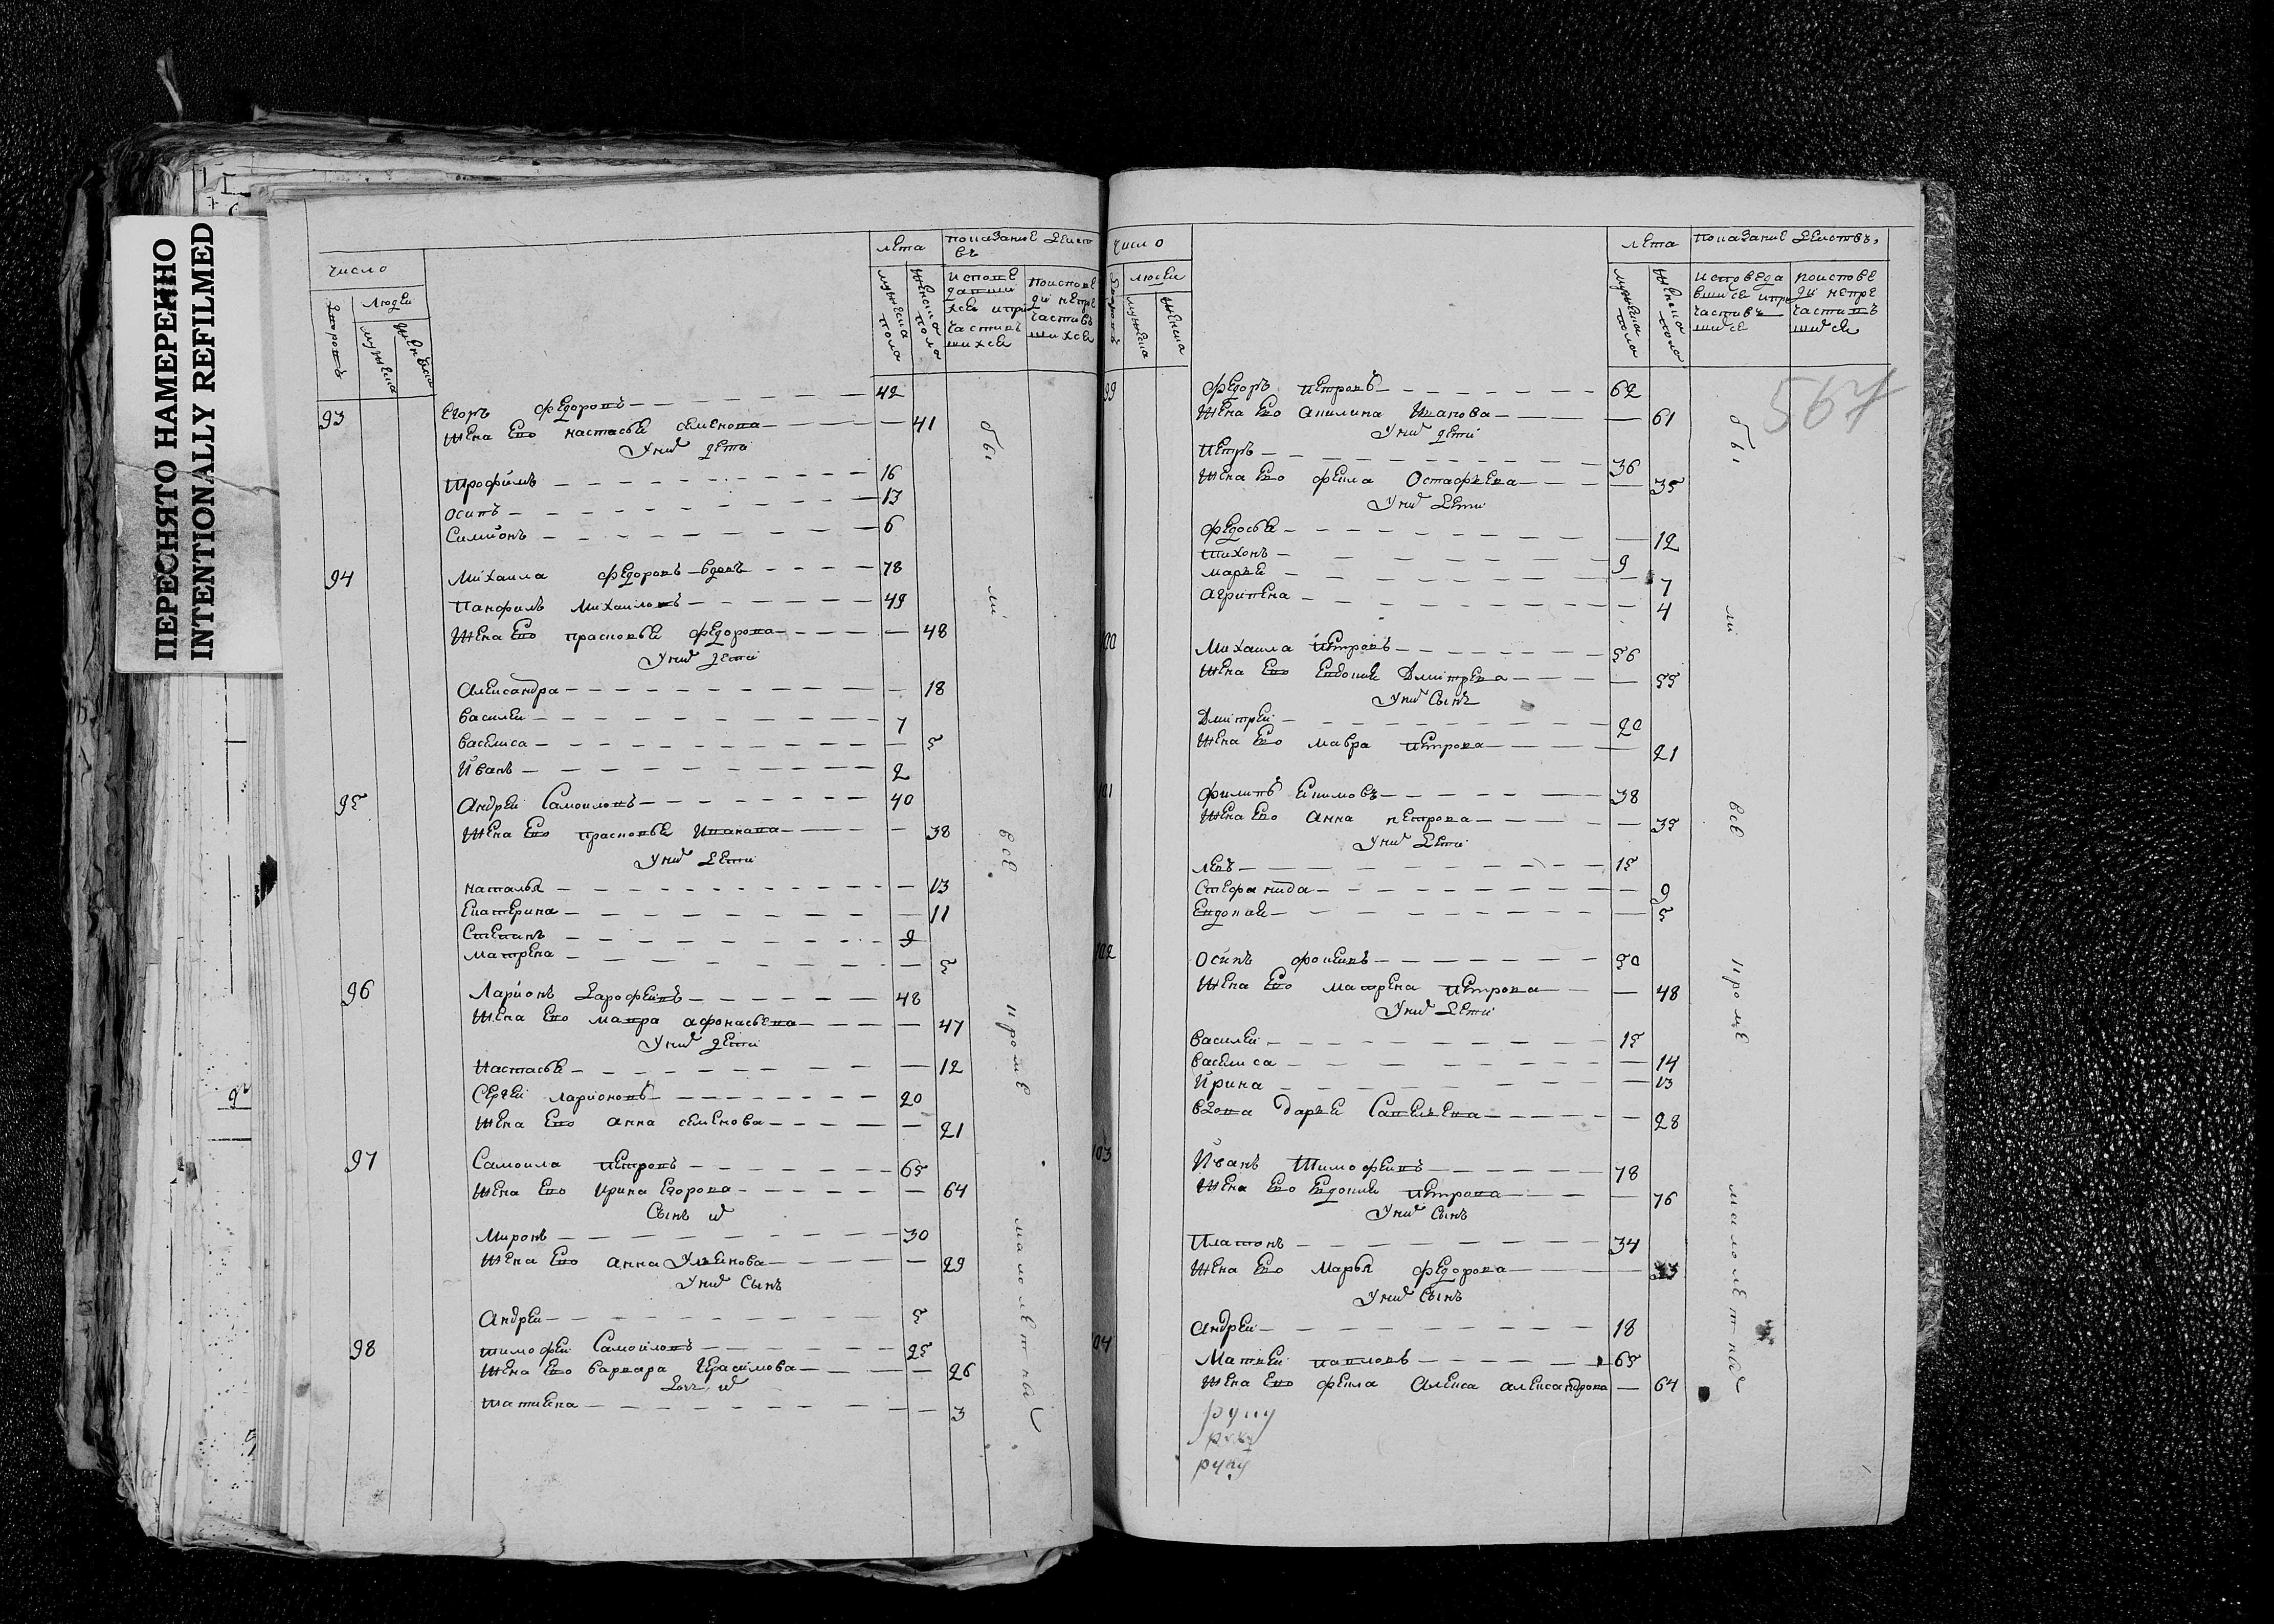 ПЕРЕСНЯТО НАМЕРЕННО
INTENTIONALLY REFILMED
число
лета
показание действ
въ
дворовъ
людей
мужеска
женска
мужеска пола
женска пола
исповедавши
хсе и при
частивъ
шихсе
поисповеди непричастивъ
шихсе
93 Егоръ федоровъ 42
Жена Ево настасье семенова 41
У них дети
Трофимъ 16
Осипъ 13
Симионъ 6
94 Михаила федоровъ вдовъ 78
Панфилъ Михаиловъ 49
Жена Ево прасковье федорова 48
У них дети
Александра 18
василеи 7
васелиса 5
Иванъ 2
95 Андреи Самоиловъ 40
Жена Ево прасковье Иванова 38
У них дети
наталья 13
Екатерина 11
Степанъ 9
матрена 5
96 Ларионъ Дарофеивъ 48
Жена Ево мавра афонасьева 47
У них дети
Настасье 12
Сергеи ларионовъ 20
Жена Ево анна семенова 21
97 Самоила петровъ 65
Жена Ево Ирина Егорова 64
Сынъ их
Миронъ 30
Жена Ево анна Ульянова 29
У них Сынъ
Андреи 5
98 тимофеи Самоиловъ 25
Жена Ево варвара Герасимова 26
дочь их
татиена 3
были все кроме малолетных
число
лета
показание действъ
дворовъ
людеи
мужеска
женска
мужеска пола
женска пола
исповеда
вшисе и при
частивъ
шисе
поисповеди непре
частивъ
шисе
567
99 федоръ петровъ 62
Жена Ево Акилина Иванова 61
У них дети
Петръ 36
Жена Ево фекла Остафьева 35
У них дети
федосья 12
тихонъ 9
марье 7
агрипена 4
100 Михаила петровъ 56
Жена Ево Евдокие Дмитрева 55
У них Сынъ
Дмитреи 20
Жена Ево мавра петрова 21
101 филипъ Екимовъ 38
Жена Ево анна петрова 35
У них дети
левъ 15
Стефанида 9
Евдокие 5
102 Осипъ фокеивъ 50
Жена Ево матрена петрова 48
У них дети
василеи 15
васелиса 14
Ирина 13
вдова дарье Савельева 28
103 Иванъ Тимофеивъ 78
Жена Ево Евдокие петрова 76
У них Сынъ
Платонъ 34
Жена Ево Марья федорова 33
У них Сынъ
андреи 18
104 Матвеи павловъ 65
Жена Ево фекла александрова 64
были все кроме малолетных
руку
руку